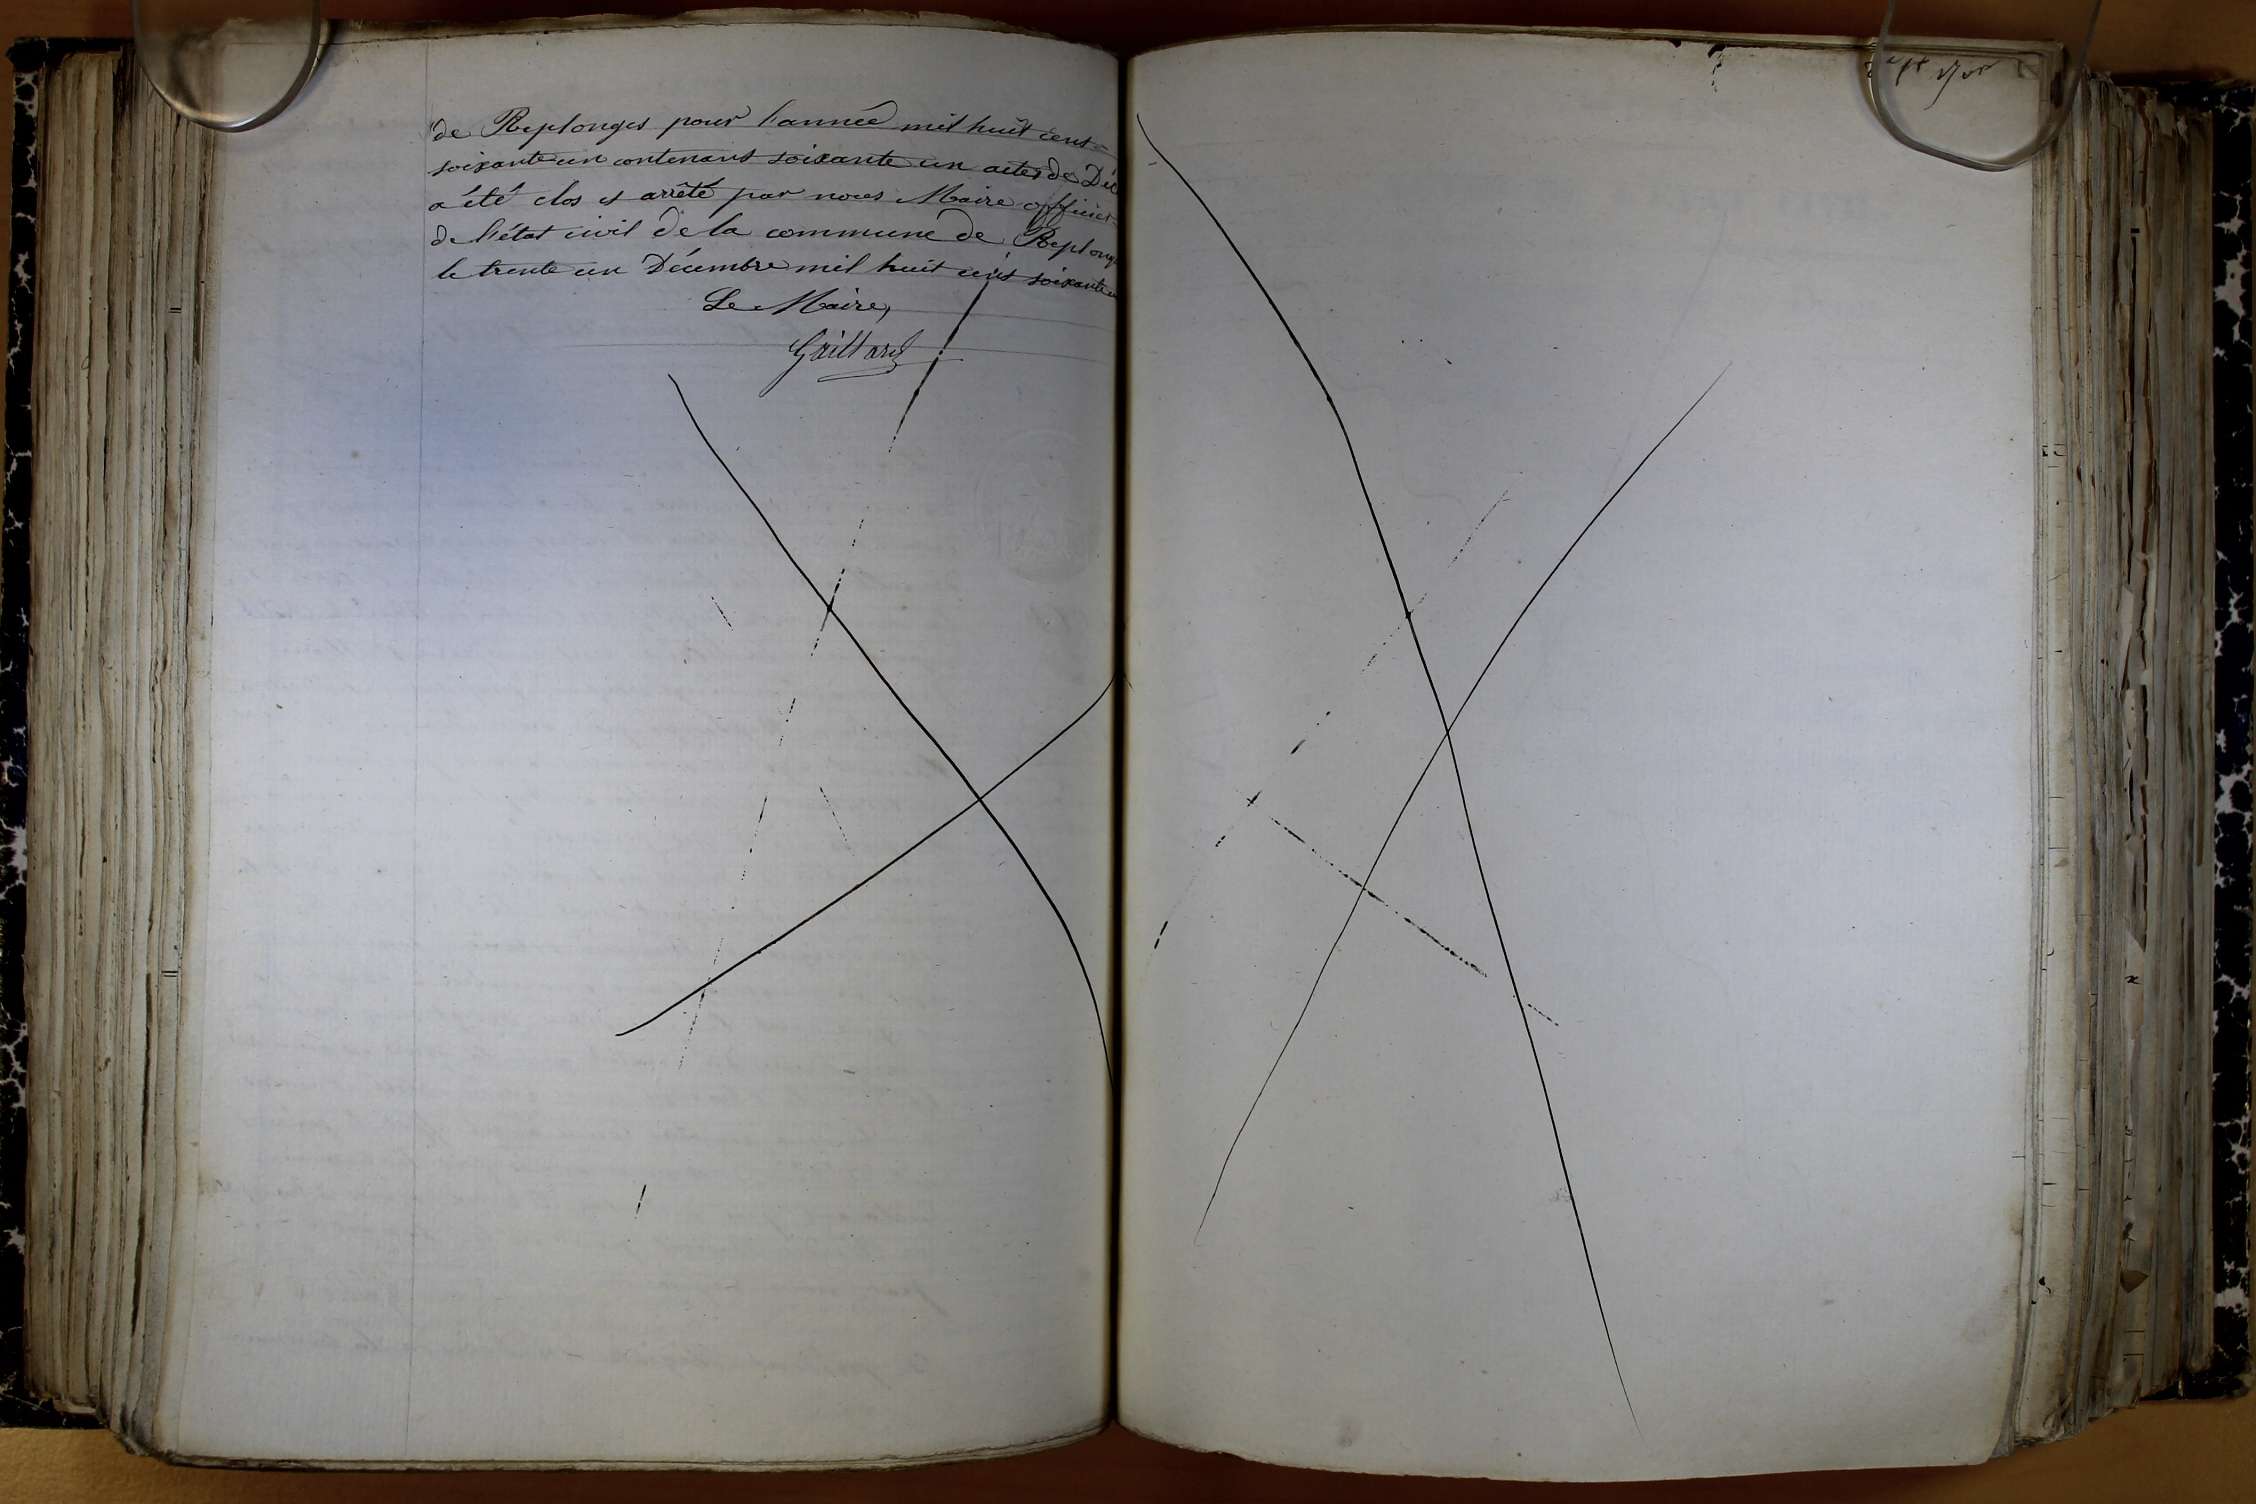 de Replonges pour l'année mil huit cent
soixante un contenant soixante un actes de Déc
a été clos et arrêté par nous Maire officier
de l'état civil de la commune de Replong
le trente un Décembre mil huit cent soixante
Le Maire,
Gaillard